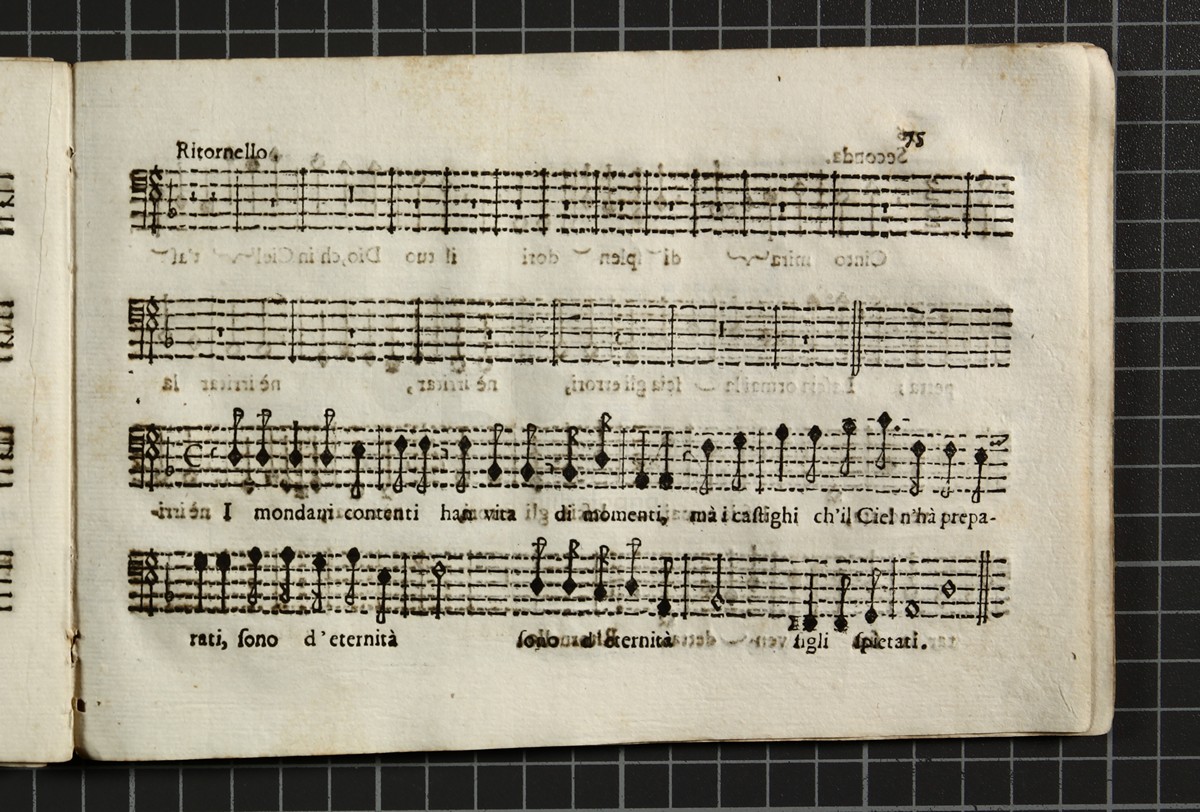 75
Ritornello.
I mondani contenti han vita di momenti, mà i caſtighi ch'il Ciel n'hà prepa-
rati, ſono d'eternità ſono d'eternità figli ſpietati.